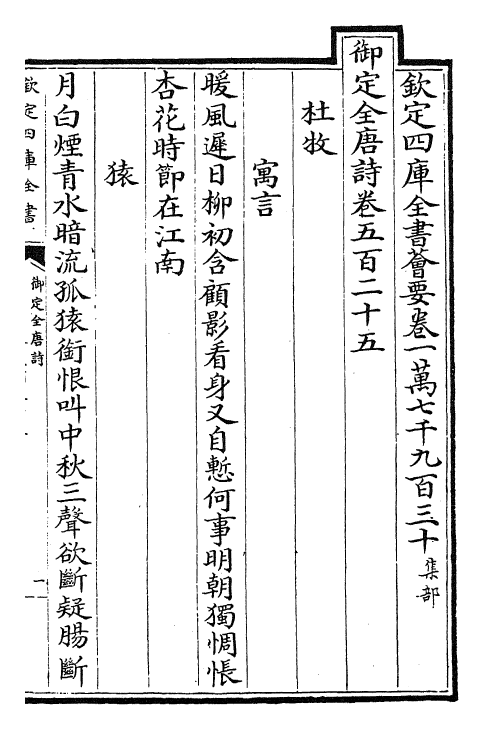 欽定四庫全書薈要卷一萬七千九百三十 集部
御定全唐詩卷五百二十五
杜牧
寓言
暖風遲日柳初含顧影看身又自慙何事明朝獨惆悵
杏花時節在江南
猿
月白煙青水暗流孤猿銜恨叫中秋三聲欲斷疑腸斷
欽定四庫全書
御定全唐詩
一